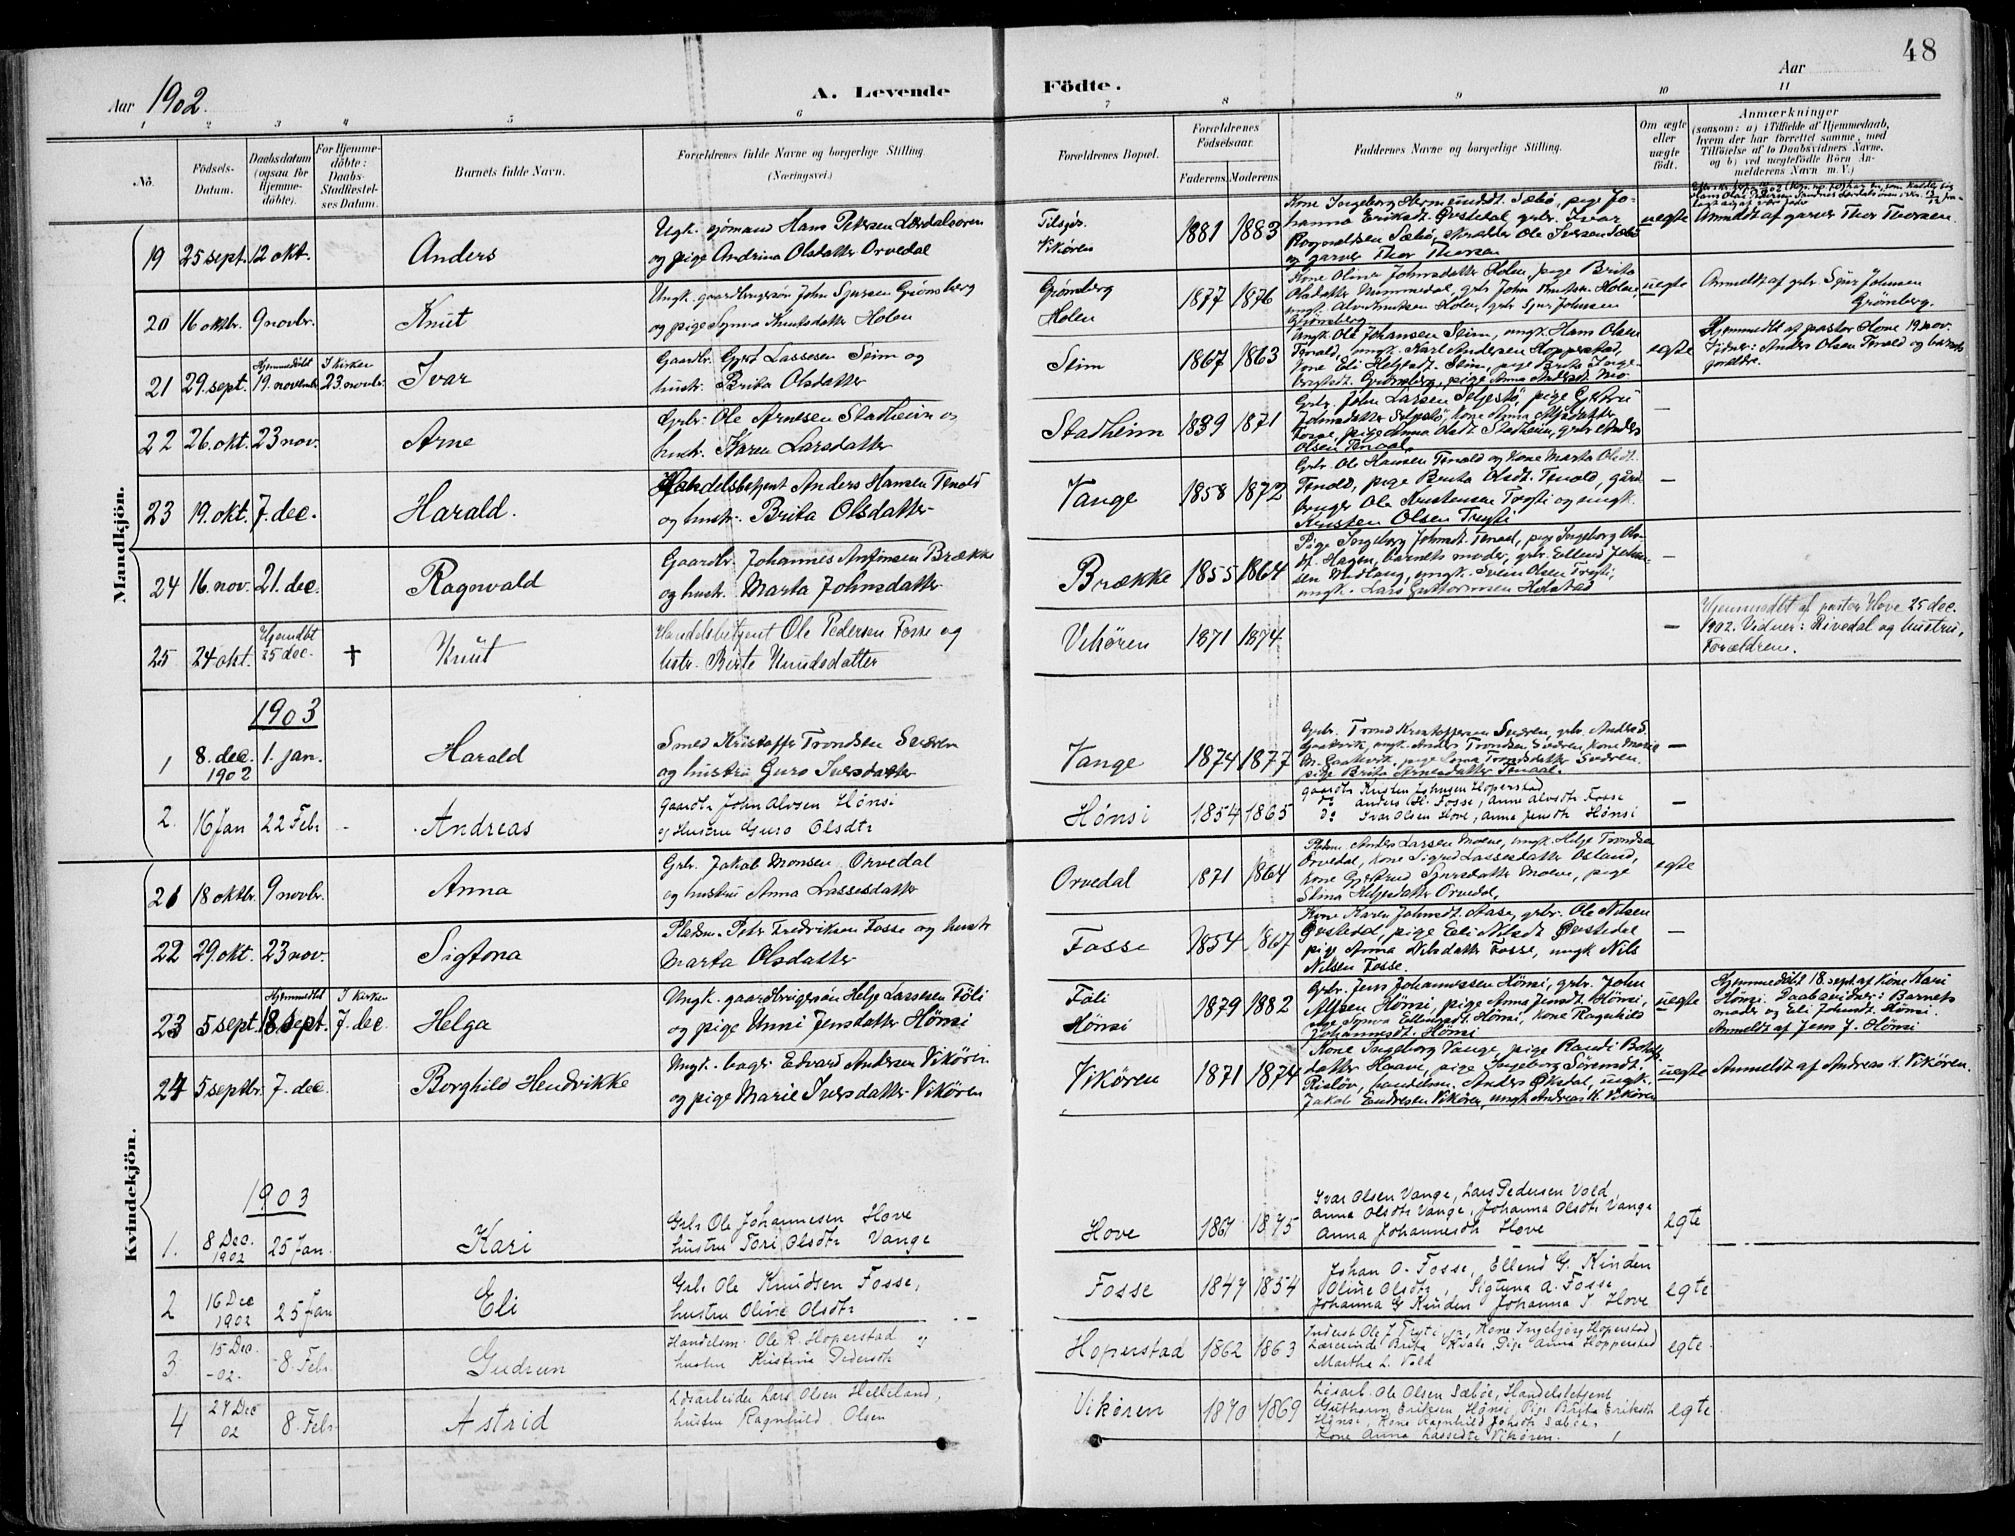 48
Aar 1902.
A. Levende Födte.
Aar
1 2 3 4 5 6 7 8 9 10 11
No.
Födsels-
Datum.
Daabsdatum
(ogsaa for
Hjemme-
döbte).
For Hjemme-
döbte:
Daabs-
Stadfæstel-
ses Datum.
Barnets fulde Navn.
Forældrenes fulde Navne og borgerlige Stilling
(Næringsvei.)
Forældrenes Bopæl.
Forældrenes
Födselsaar.
Faderens. Moderens.
Faddernes Navne og borgerlige Stilling.
Om ægte
eller
uægte
födt.
Anmærkninger
(saasom: a) i Tilfælde af Hjemmedaab,
hvem der har forrettet samme, med
Tilföielse af to Daabsvidners Navne,
og b) ved uægtefödte Börn An-
melderens Navn m. V.)
Mandkjön.
19 25 sept. 12 okt. Anders
Ugk. sjömand Hans Petersen Lærdalsören
og pige Andrina Olsdatter Orvedal
Vikören
1881 1883
Kone Ingeborg Hermundsdt. Sæbö, pige Jo-
hanna Eriksdt. Övstedal, grbr. Ivar
Ragnvaldsen Sæbö, Ole Iversen Sæbö
og garver Thor Thorsen
uegte
Anmeldt af garver Thor Thorsen
20 16 oktbr. 9 novbr. Knut
Ungk. gaardbrugersön John Sjursen Grönsberg
og pige Synva Knutsdatter Holen
Grönsberg
Holen
1877 1876
Kone Olina Johnsdatter Holen, pige Brita
Olsdatter Nummedal, grbr. John Knutsen Holen,
ungk. Alv Knutsen Holen, grbr. Sjur Johnsen
Grönsberg
uegte
Anmeldt af grbr. Sjur Johnsen
Grönsberg.
21 29. sept. Hjemmedöbt 19. novembr. I Kirken 23. novbr. Ivar
Gaardbr. Gjert Lassesen Seim og
hustr. Brita Olsdatter
Seim
1867 1863
Ungk. Ole Johansen Seim, ungk. Hans Olsen
Tenold, ungk. Karl Andersen Hopperstad,
kone Eli Helgesdt. Seim, pige Brita Inge-
brigtsdt. Grönsberg, pige Anna Andersdt. Mo.
egte
Hjemmedöbt af pastor Hove 19. nov.
Vidner: Anders Olsen Tenold og barnets
foreldre.
22 26. okt. 23 nov. Arne
Grbr. Ole Arnesen Stadheim og
hustr. Karen Larsdatter
Stadheim
1839 1871
Grbr. John Larsen Seljestö, pige Gjetrú
Johnsdatter Seljestö, kone Anna
Fosse, pige Anna Olsdt. Stadheim, grbr. Anders
Olsen Tenaal
—
23 19. okt. 7. dec. Harald.
Handelsbetjent Anders Hansen Tenold
og hustr. Brita Olsdatter
Vange
1858 1872
Grbr. Ole Hansen Tenold og kone Marta Olsdt.
Tenold, pige Brita Olsdt. Tenold, gård-
bruger Ole Kristensen Trygti og ungk.
Kristen Olsen Trygti
—
24 16. nov. 21. dec. Ragnvald
Gaardbr. Johannes Antonsen Brække
og hustr. Marta Johnsdatter
Brække
1855 1864
Pige Ingeborg Johnsdt. Tenaal, pige Ingeborg Ols-
dt. Hagen, barnets moder, grbr. Ellend John-
sen Midlang, ungk. Svein Olsen Trygti,
ungk. Lars Guttormsen Holstad
—
25 24 okt. Hjemdbt 25 dec. † Knut
Handelsbetjent Ole Pedersen Fosse og
hstr. Birte Knudsdatter
Vikören
1871 1874
—
Hjemmedöbt af pastor Hove 25 dec.
1902. Vidner: Rivedal og hustru,
Forældrene.
1903
1 8. dec. 1902 1. jan. Harald
Smed Kristoffer Trondsen Sværen
og hustru Guro Iversdatter
Vange
1874 1877
Grbr. Trond Kristoffersen Sværen, grbr. Anders S.
ungk. Anders Trondsen Sværen, kone Marie
pige Trondsdatter Sværen,
pige Brita Arnesdatter Tenaal.
—
2. 16 Jan 22 Febr - Andreas
Gaardbr John Alvsen Hönsi
og Hustru Guro Olsdtr
Hönsi
1854 1865
gaardbr Kristen Johnsen Hoperstad
do Anders H. Fosse, Anne Alvsdtr Fosse
do Ivar Olsen Hove, Anna Jensdtr Hönsi
—
Kvindekjön.
21 18 oktbr. 9 novbr. Anna
Grbr. Jakob Monsen Orvedal
og hustru Anna Lassesdatter
Orvedal
1871 1864
Pladsm. Anders Larsen Moene, ungk. Helge Trondsen
Orvedal, kone Sigrid Lassesdatter Osland,
kone Gjertrud Sjursdatter Moene, pige
Stina Helgesdatter Orvedal.
egte
22 29. okt. 23 nov. Sigtona
Pladsm. Peter Fredriksen Fosse og hustr
Marta Olsdatter
Fosse
1854 1867
Kone Karen Johnsdt. Aase, grbr. Ole Nilsen
Övstedal, pige Eli Nilsdt. Övstedal
pige Anna Nilsdatter Fosse, ungk Nils
Nilsen Fosse.
—
23 5 sept. Hjemmedöbt 18. sept. I Kirken 7. dec. Helga
Ungk. gaardbrugersön Helge Lassesen Föli
og pige Unni Jensdatter Hönsi
Föli
Hönsi
1879 1882
Grbr. Jens Johannessen Hönsi, grbr. John
Alfsen Hönsi, pige Anna Jensdt. Hönsi,
pige Synva Ellingsdt. Hönsi, kone Ragnhild
Johannesdt. Hönsi
uegte
Hjemmedöbt 18. sept. af kone Kari
Hönsi. Daabsvidner: Barnets
moder og Eli Johnsdt. Hönsi.
Anmeldt af Jens J. Hönsi
24 5 septbr. 7. dec. Borghild Hendrikke
Ungk. bager Edvard Andersen Vikören
og pige Marie Iversdatter Vikören
Vikören
1871 1874
Kone Ingeborg Vange, pige Randi Botolfs-
datter Hoave, pige Ingeborg Sörensdt.
Rislöv, handelsm. Anders Öksdal, ungk.
Jakob Endresen Vikören, ungk. Andreas K. Vikören
uegte
Anmeldt af Andreas K. Vikören.
1903
1. 8 Dec. 1902 25 Jan. Kari
Grbr Ole Johannesen Hove
hustru Tori Olsdtr Vange
Hove
1867 1875
Ivar Olsen Vange, Lars Pedersen Vold
Anna Olsdtr Vange, Johanna Olsdtr Vange
Anna Johannesdtr Hove
egte
2 16 Dec 1902 25 Jan Eli
Grbr Ole Knudsen Fosse,
hustru Oline Olsdtr
Fosse
1847 1854
Johan O. Fosse, Ellend G. Kinden
Oline Olsdtr, Sigtuna A. Fosse
Johanna G. Kinden Johanna I Hove
egte
3 15 Dec. -02- 8. Febr. Gudrun
Handelsm Ole R. Hoperstad og
hustru Kristine Pedersdtr
Hoperstad
1862 1863
Inderst Ole J Trygti, Kone Ingebjörg Hoperstad
Lærerinde Brita Kvale, Pige Anna Hopperstad
Martha L. Vold
egte.
4 27 Dec 02 8. Febr Astrid
Lösarbeider Lars Olsen Helleland,
hustru Ragnhild Olsen
Vikören
1870 1869
Lösarb. Ole Olsen Sæbøe, Handelsbetjent
Guthorm Eriksen Hönsi, Pige Bryta Eriksdtr
Hönsi, Kone Ragnhild Johsdtr Sæböe,
Kone Anna Lassedtr Vikören.
egte